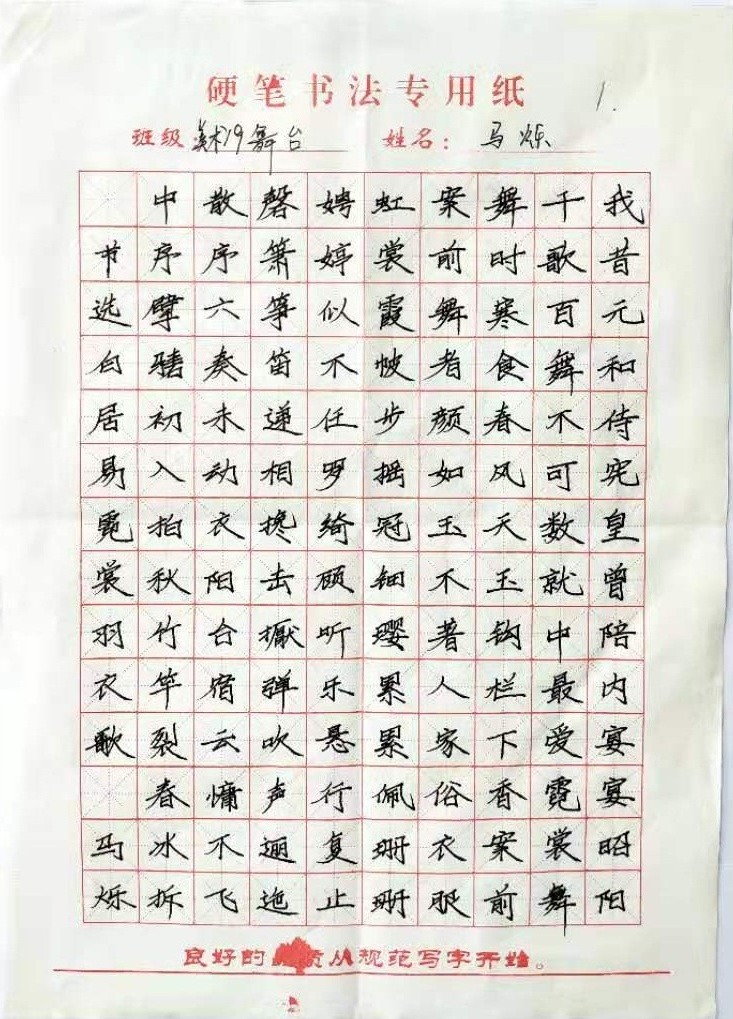 硬笔书法专用纸
1.
班级 美术19舞台 姓名： 马烁
我昔元和侍宪皇曾陪内宴宴昭阳
千歌百舞不可数就中最爱霓裳舞
舞时寒食春风天玉钩栏下香案前
案前舞者颜如玉不著人家俗衣服
虹裳霞帔步摇冠钿璎累累佩珊珊
娉婷似不任罗绮顾听乐悬行复止
磬箫筝笛递相搀击擫弹吹声逦迤
散序六奏未动衣阳台宿云慵不飞
中序擘騞初入拍秋竹竿裂春冰拆
节选白居易霓裳羽衣歌 马烁
良好的质从规范写字开始。